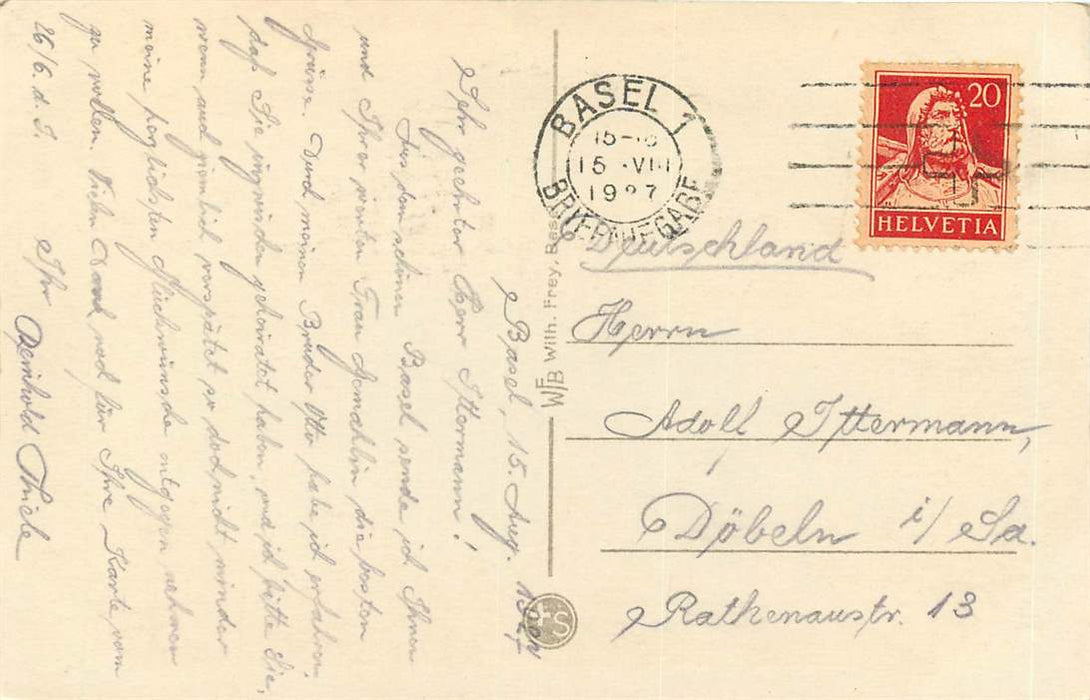 Basel, 15. Aug. 1927
Sehr geehrter Herr Ittermann!
Aus dem schönen Basel sende ich Ihnen
und Ihrer werten Frau Gemahlin die besten
Grüsse. Durch meinen Bruder Otto habe ich erfahren,
daß Sie inzwischen geheiratet haben, und ich bitte Sie,
wenn auch ziemlich verspätet so doch nicht minder
meine herzlichsten Glückwünsche entgegen nehmen
zu wollen. Vielen Dank noch für Ihre Karte vom
26/6. d. J.
Ihr Reinhold Thiele
WFB Wilh. Frey, Bas
BASEL 1
15-16
15 VIII
1927
BRIEFAUFGABE
20
HELVETIA
Deutschland
Herrn
Adolf Ittermann,
Döbeln i/Sa.
Rathenaustr. 13